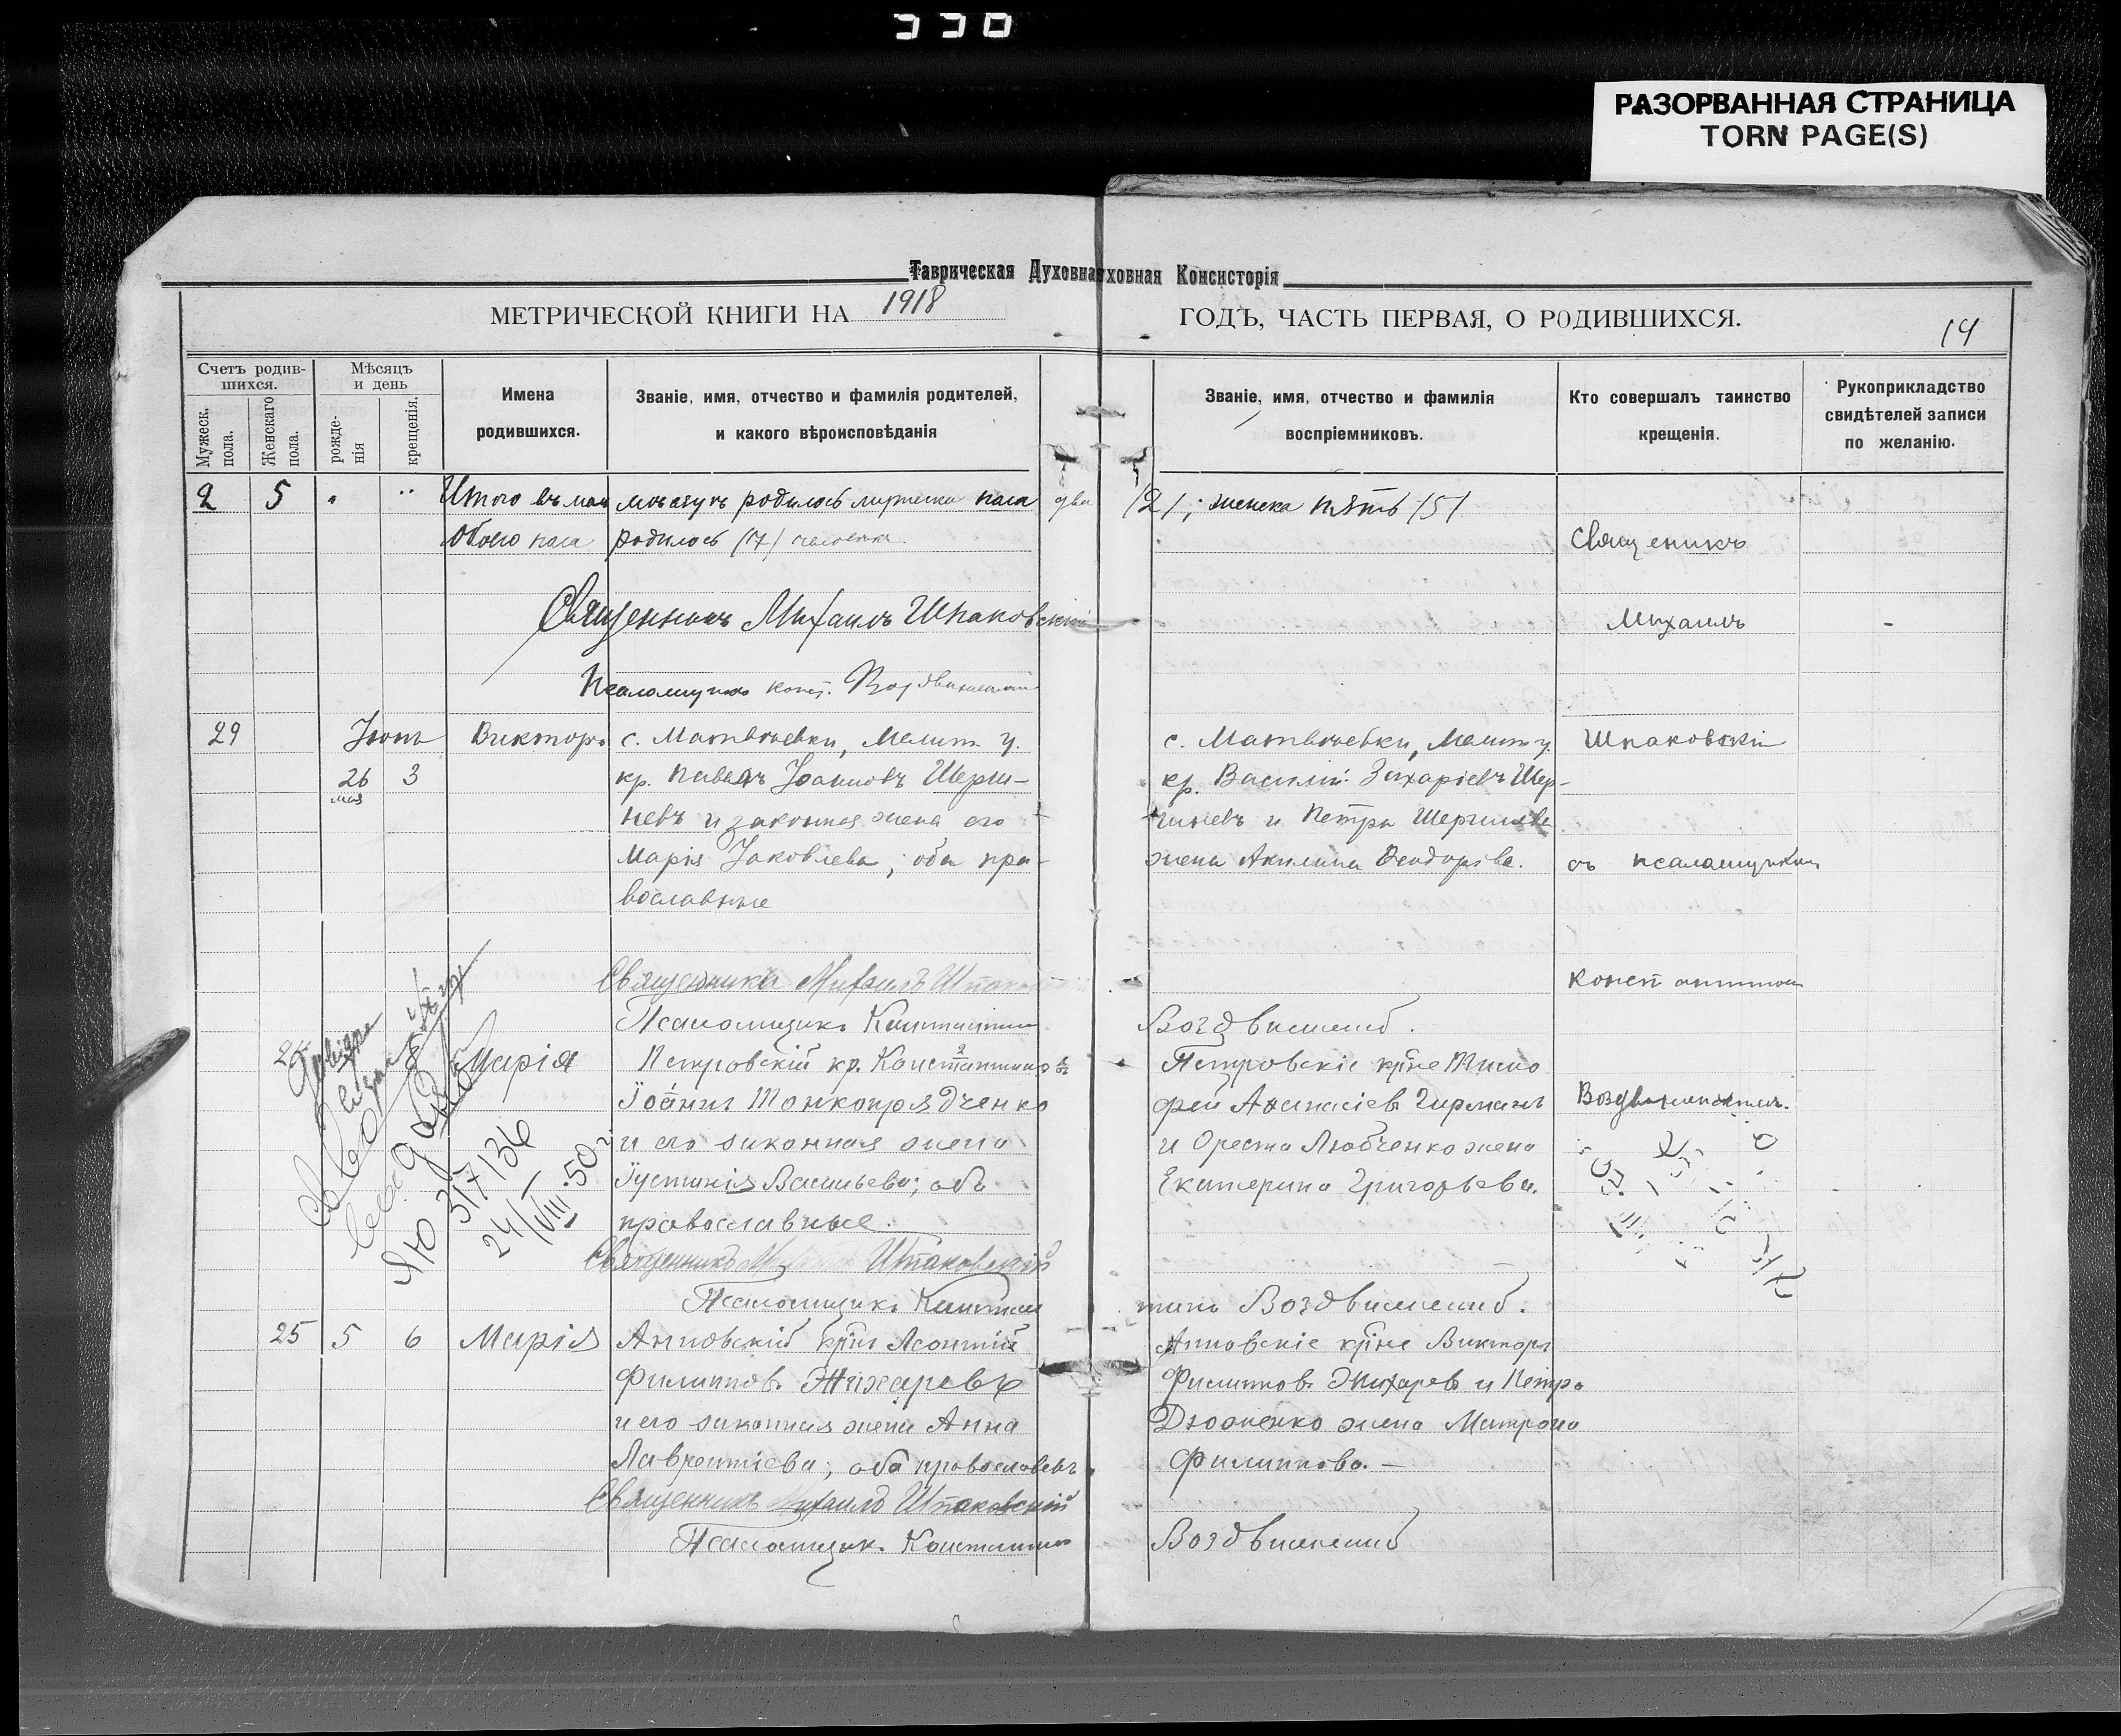 РАЗОРВАННАЯ СТРАНИЦА
TORN PAGE(S)
Таврическая Духовна
уховная Консисторія
МЕТРИЧЕСКОЙ КНИГИ НА 1918
ГОДЪ, ЧАСТЬ ПЕРВАЯ, О РОДИВШИХСЯ.
14
Счетъ родив-
шихся.
Мужеск.
пола.
Женскаго
пола.
Мѣсяцъ
и день
рожде-
нія
крещенія.
Имена
родившихся.
Званіе, имя, отчество и фамилія родителей,
и какого вѣроисповѣданія
Званіе, имя, отчество и фамилія
воспріемниковъ.
Кто совершалъ таинство
крещенія.
Рукоприкладство
свидѣтелей записи
по желанію.
2 5 Итого въ маѣ мѣсяцѣ родилось мужеска пола два /2/; женска пять /5/
Обоего пола родилось (7) человѣкъ
Священикъ
Священникъ Михаилъ Шпаковскій
Михаилъ
Псаломщикъ Конст.
29 Іюнь Викторъ с. Матвѣевки, Мелит. у.
26 3 кр. Павелъ Іоанновъ Шерши-
мая
невъ и законная жена его
Марія Іаковлева; оба пра-
вославные
с. Матвѣевки, Мелит. у.
кр. Василій Захаріевъ Шер-
шневъ и Петра Шершнева
жена Акилина Ѳеодорова.
Шпаковскій
съ псаломщикомъ
Священникъ Михаилъ Шпаков
Псаломщикъ Константинъ
Воздвиженскій.
Константиномъ
24 Марія Петровскій кр. Константинъ
Іоаннъ Тонкопрядченко
и его законная жена
Іустинія Васильева; оба
православные.
Петровскіе кр-не Тимо
фей Аѳанасіевъ Гирманъ
и Ореста Любченко жена
Екатерина Григорьева.
Воздвиженскимъ.
ЯЮ 317136
24/VIII.50 г.
Священникъ Шпаковскій
Псаломщикъ Констан
тинъ Воздвиженскій.
25 5 6 Марія Анновскій кр-нъ Леонтій
Филипповъ Жихаревъ
и его законная жена Анна
Лаврентіева; оба православн.
Анновскіе кр-не Викторъ
Филипповъ Жихаревъ и Петра
жена Матрона
Филиппова. —
Священникъ Михаилъ Шпаковскій
Псаломщикъ Константинъ
Воздвиженскій